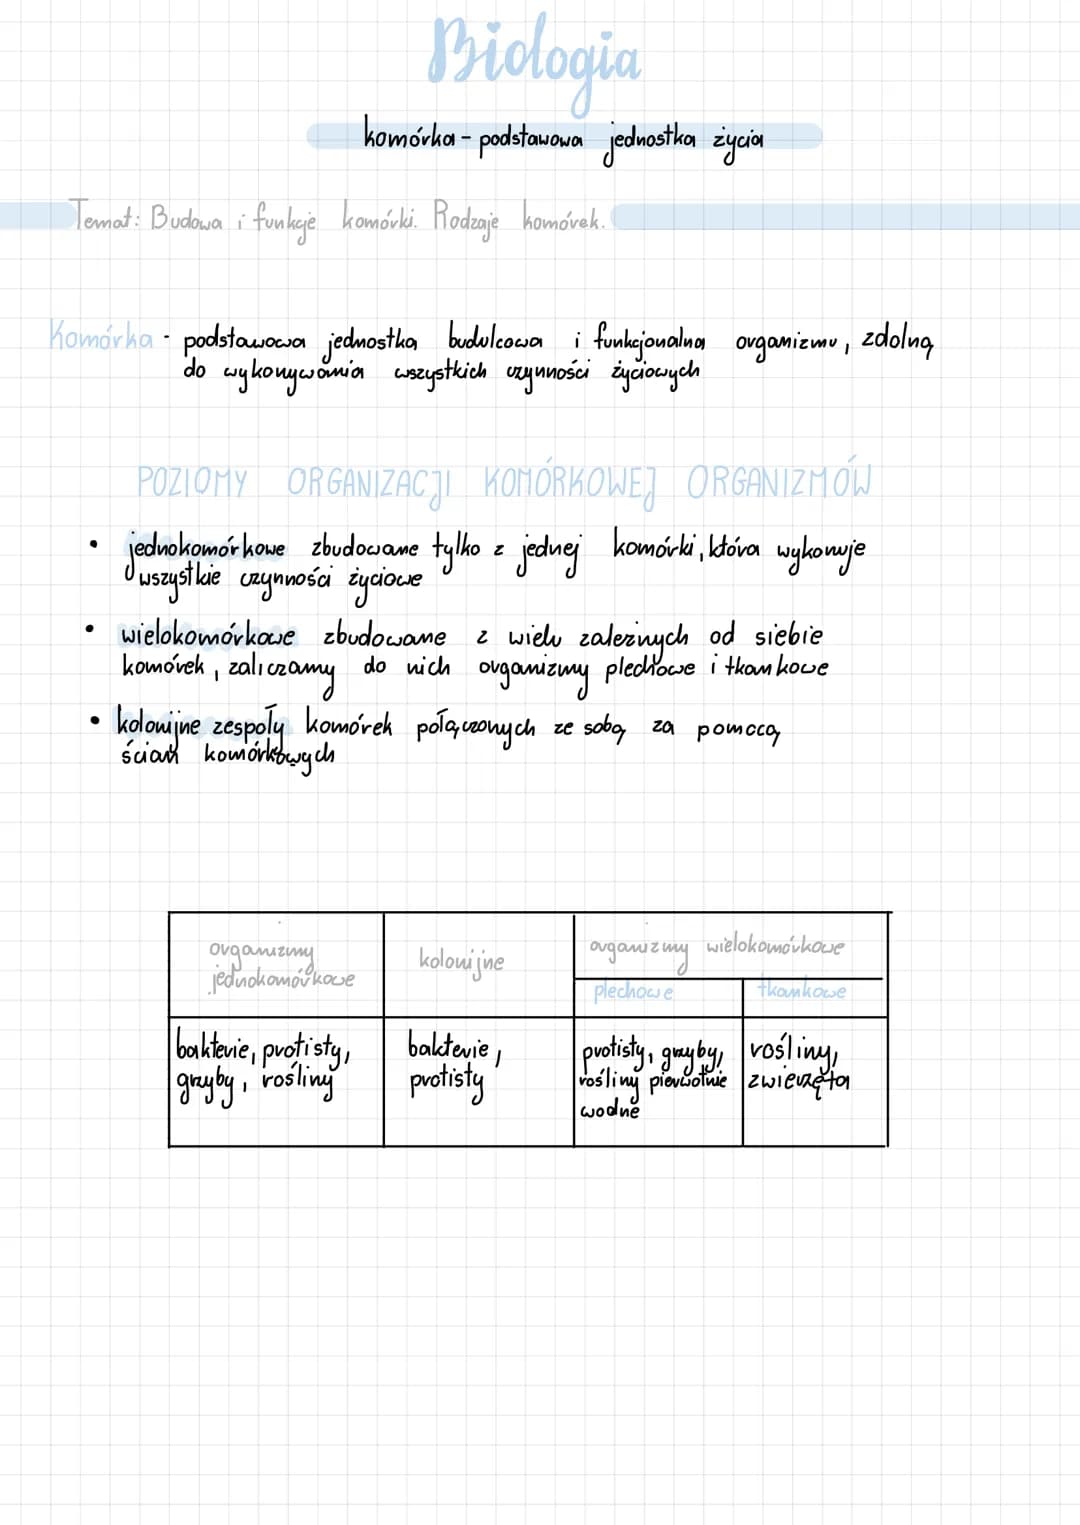 Biologia
komórka - podstawowa jednostka życia
Temat: Budowa i funkcje komórki. Rodzaje komórek.
Komórka - podstawowa jednostka budulcowa i funkcjonalna organizmu, zdolną
do wykonywania wszystkich czynności życiowych
POZIOMY ORGANIZACJI KOMÓRKOWEJ ORGANIZMÓW
• jednokomórkowe zbudowane tylko z jednej komórki, która wykonuje
wszystkie czynności życiowe
• wielokomórkowe zbudowane z wielu zależnych od siebie
komórek, zaliczamy do nich organizmy plechowe i tkankowe
• kolonijne zespoły komórek połączonych ze sobą za pomocą
ścian komórkowych
organizmy
jednokomórkowe
kolonijne
organizmy wielokomórkowe
plechowe
tkankowe
bakterie, protisty,
grzyby, rośliny
bakterie,
protisty
protisty, grzyby,
rośliny pierwotnie
wodne
rośliny,
zwierzęta